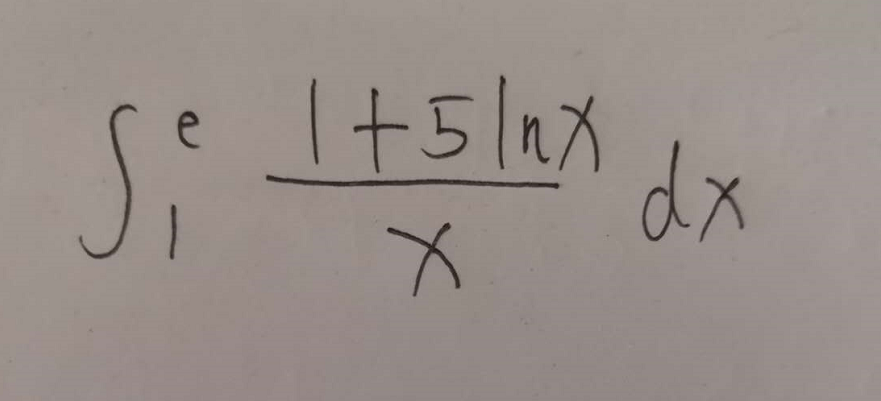 ∫₁ᵉ (1+5lnx)/x dx